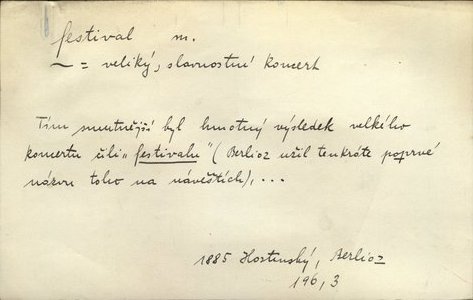 festival m.
~ = veliký, slavnostné koncert
Tím smutnější byl hmotný výsledek velkého
koncertu čili „festivalu" (Berlioz užil tenkráte poprvé
názvu toho na návěštích), ...
1885 Hostinský, Berlioz
196, 3